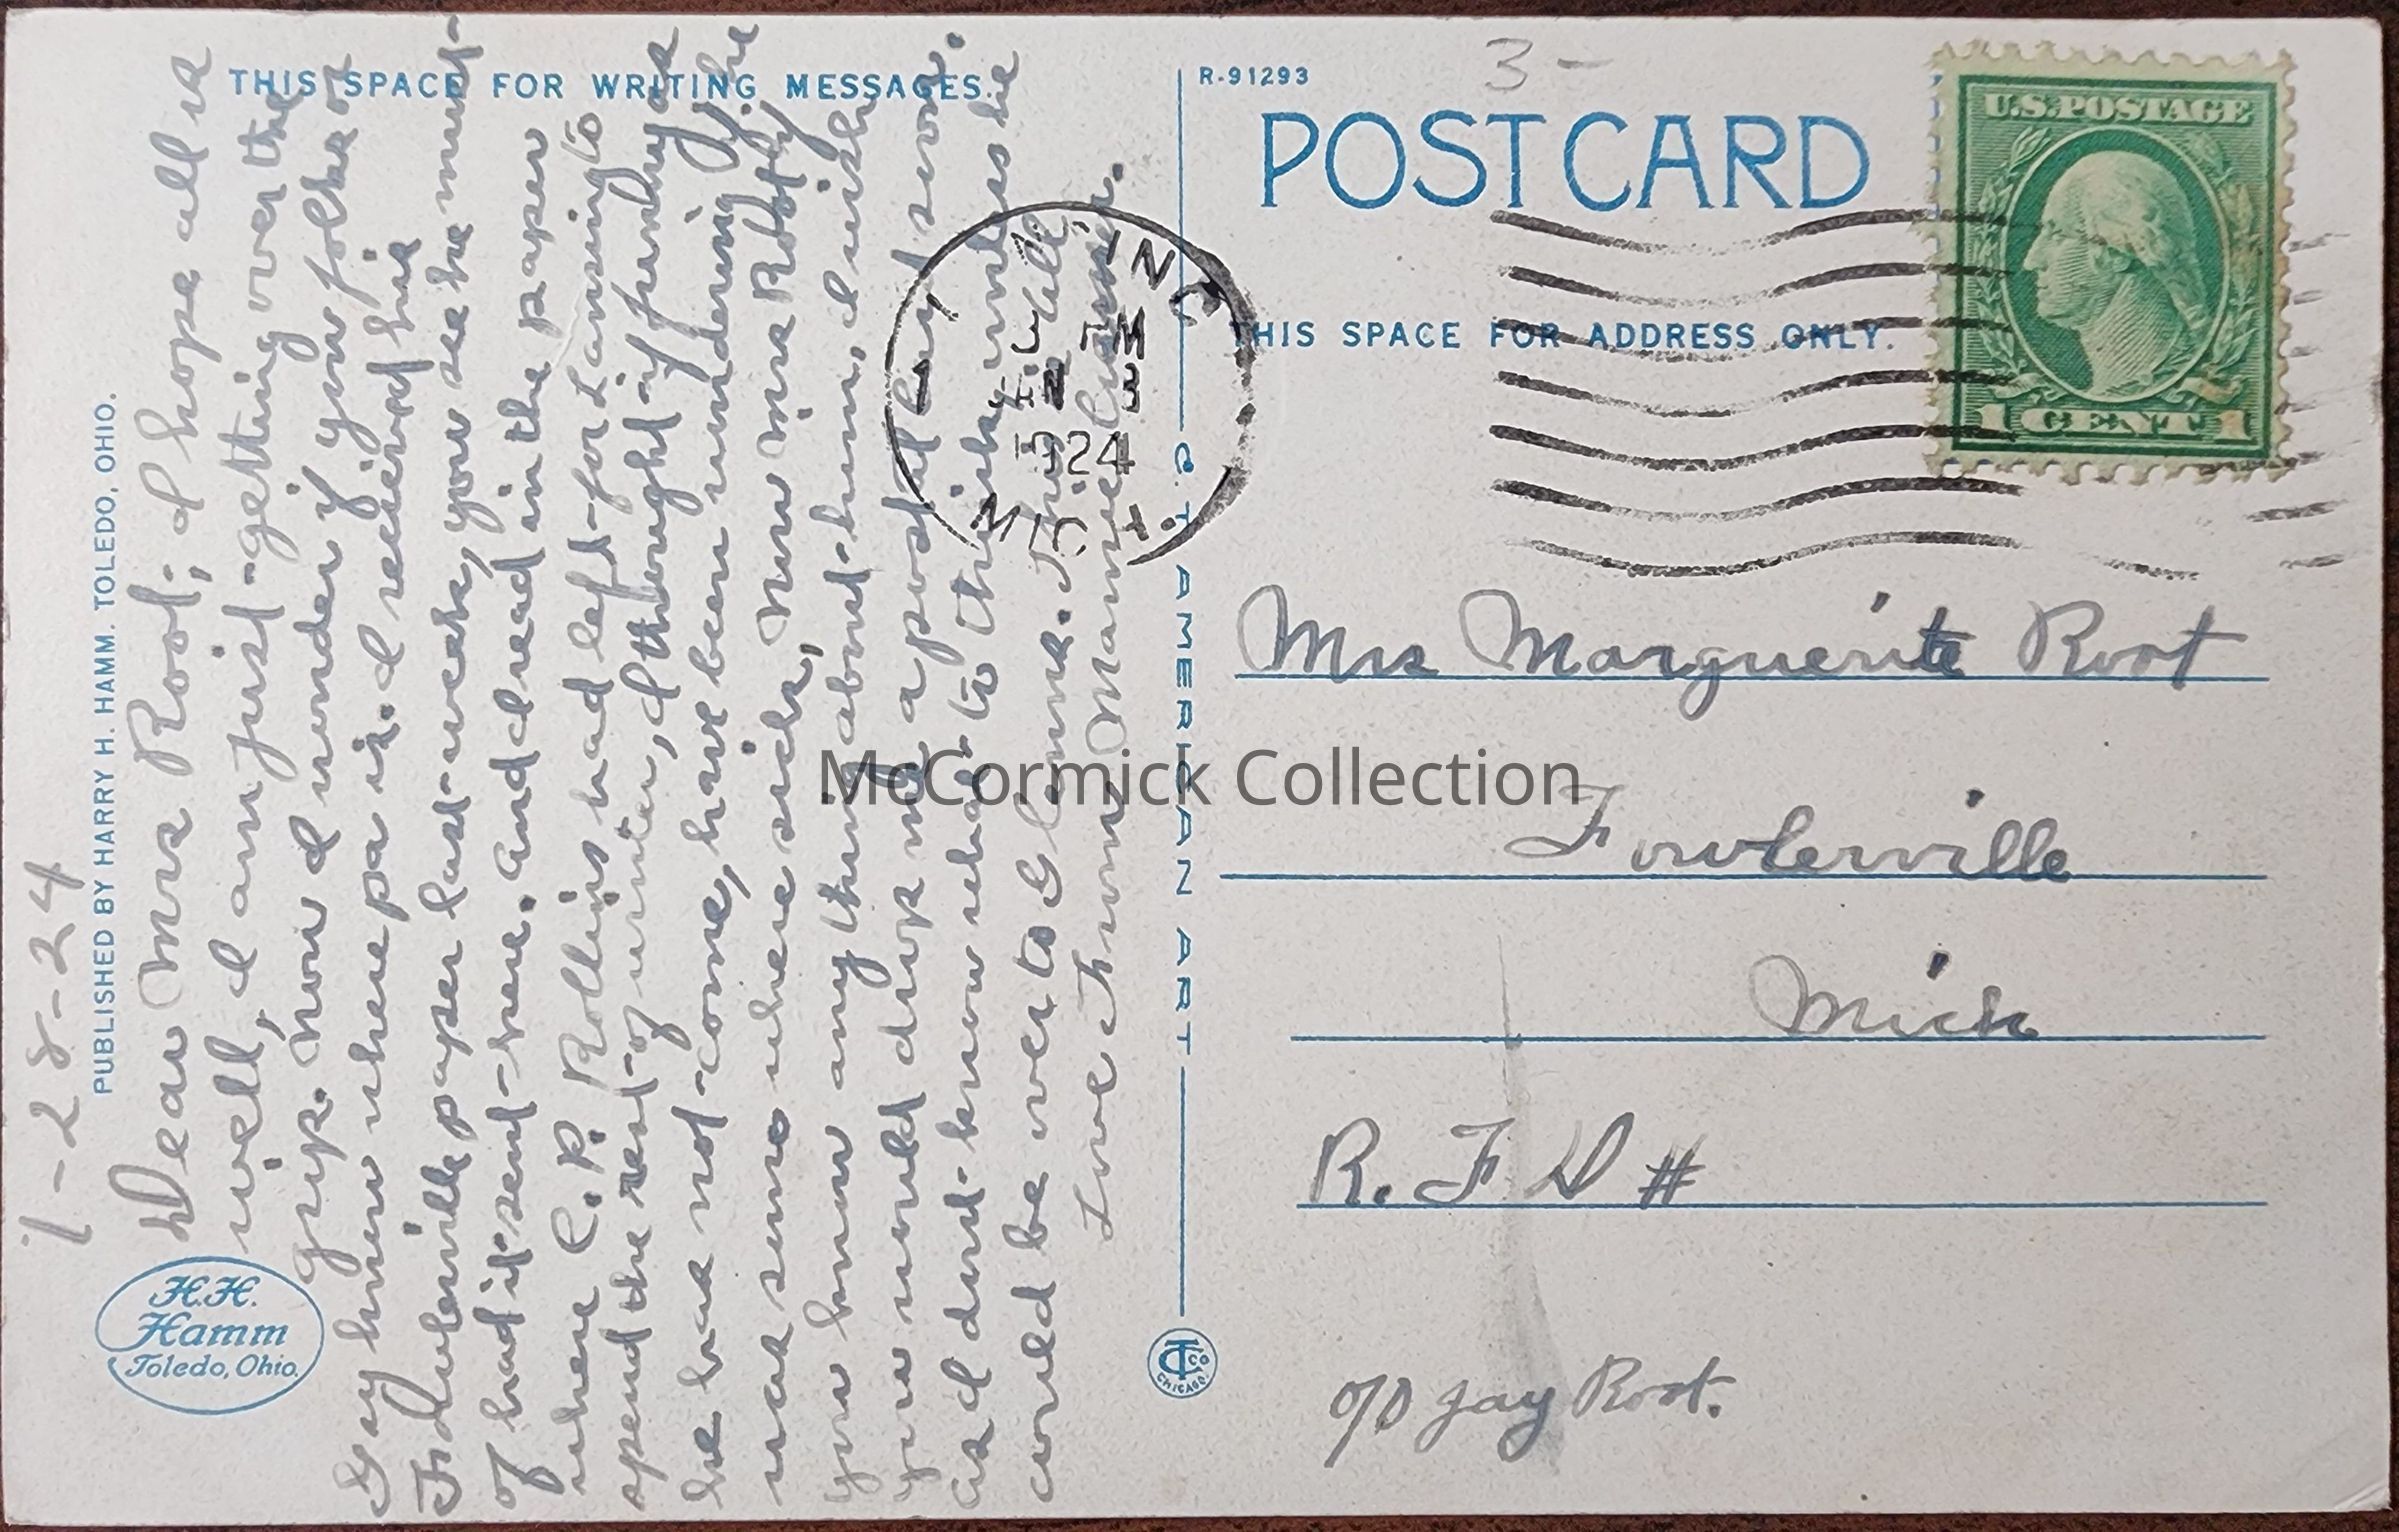 THIS SPACE FOR WRITING MESSAGES.
R-91293
3 -
POST CARD
U.S. POSTAGE
1 CENT 1
THIS SPACE FOR ADDRESS ONLY.
PUBLISHED BY HARRY H. HAMM. TOLEDO, OHIO.
H.H.
Hamm
Toledo, Ohio.
1-28-24
Dear Mrs Root; I hope all is
well, I am just getting over the
grip. Now I wonder if you folks or
Gay know where pa is. I received his
Fowlerville paper last week, you see he must
of had it sent here. and I read in the paper
where C. R. Rollins had left for Lansing to
spend the rest of winter, I thought if funny as
he has not come, have been wondering if he
was some where sick, Now Mrs Root if
you know any thing about him, I wish
you would drop me a postal card soon.
as I don't know what to think, unless he
could be over to Glenns. This is all
Love From Mamie
C. T. AMERICAN ART
CTCo
CHICAGO.
MICH.
McCormick Collection
Mrs Marguerite Root
Fowlerville
Mich
R. F D #
o/o Jay Root.